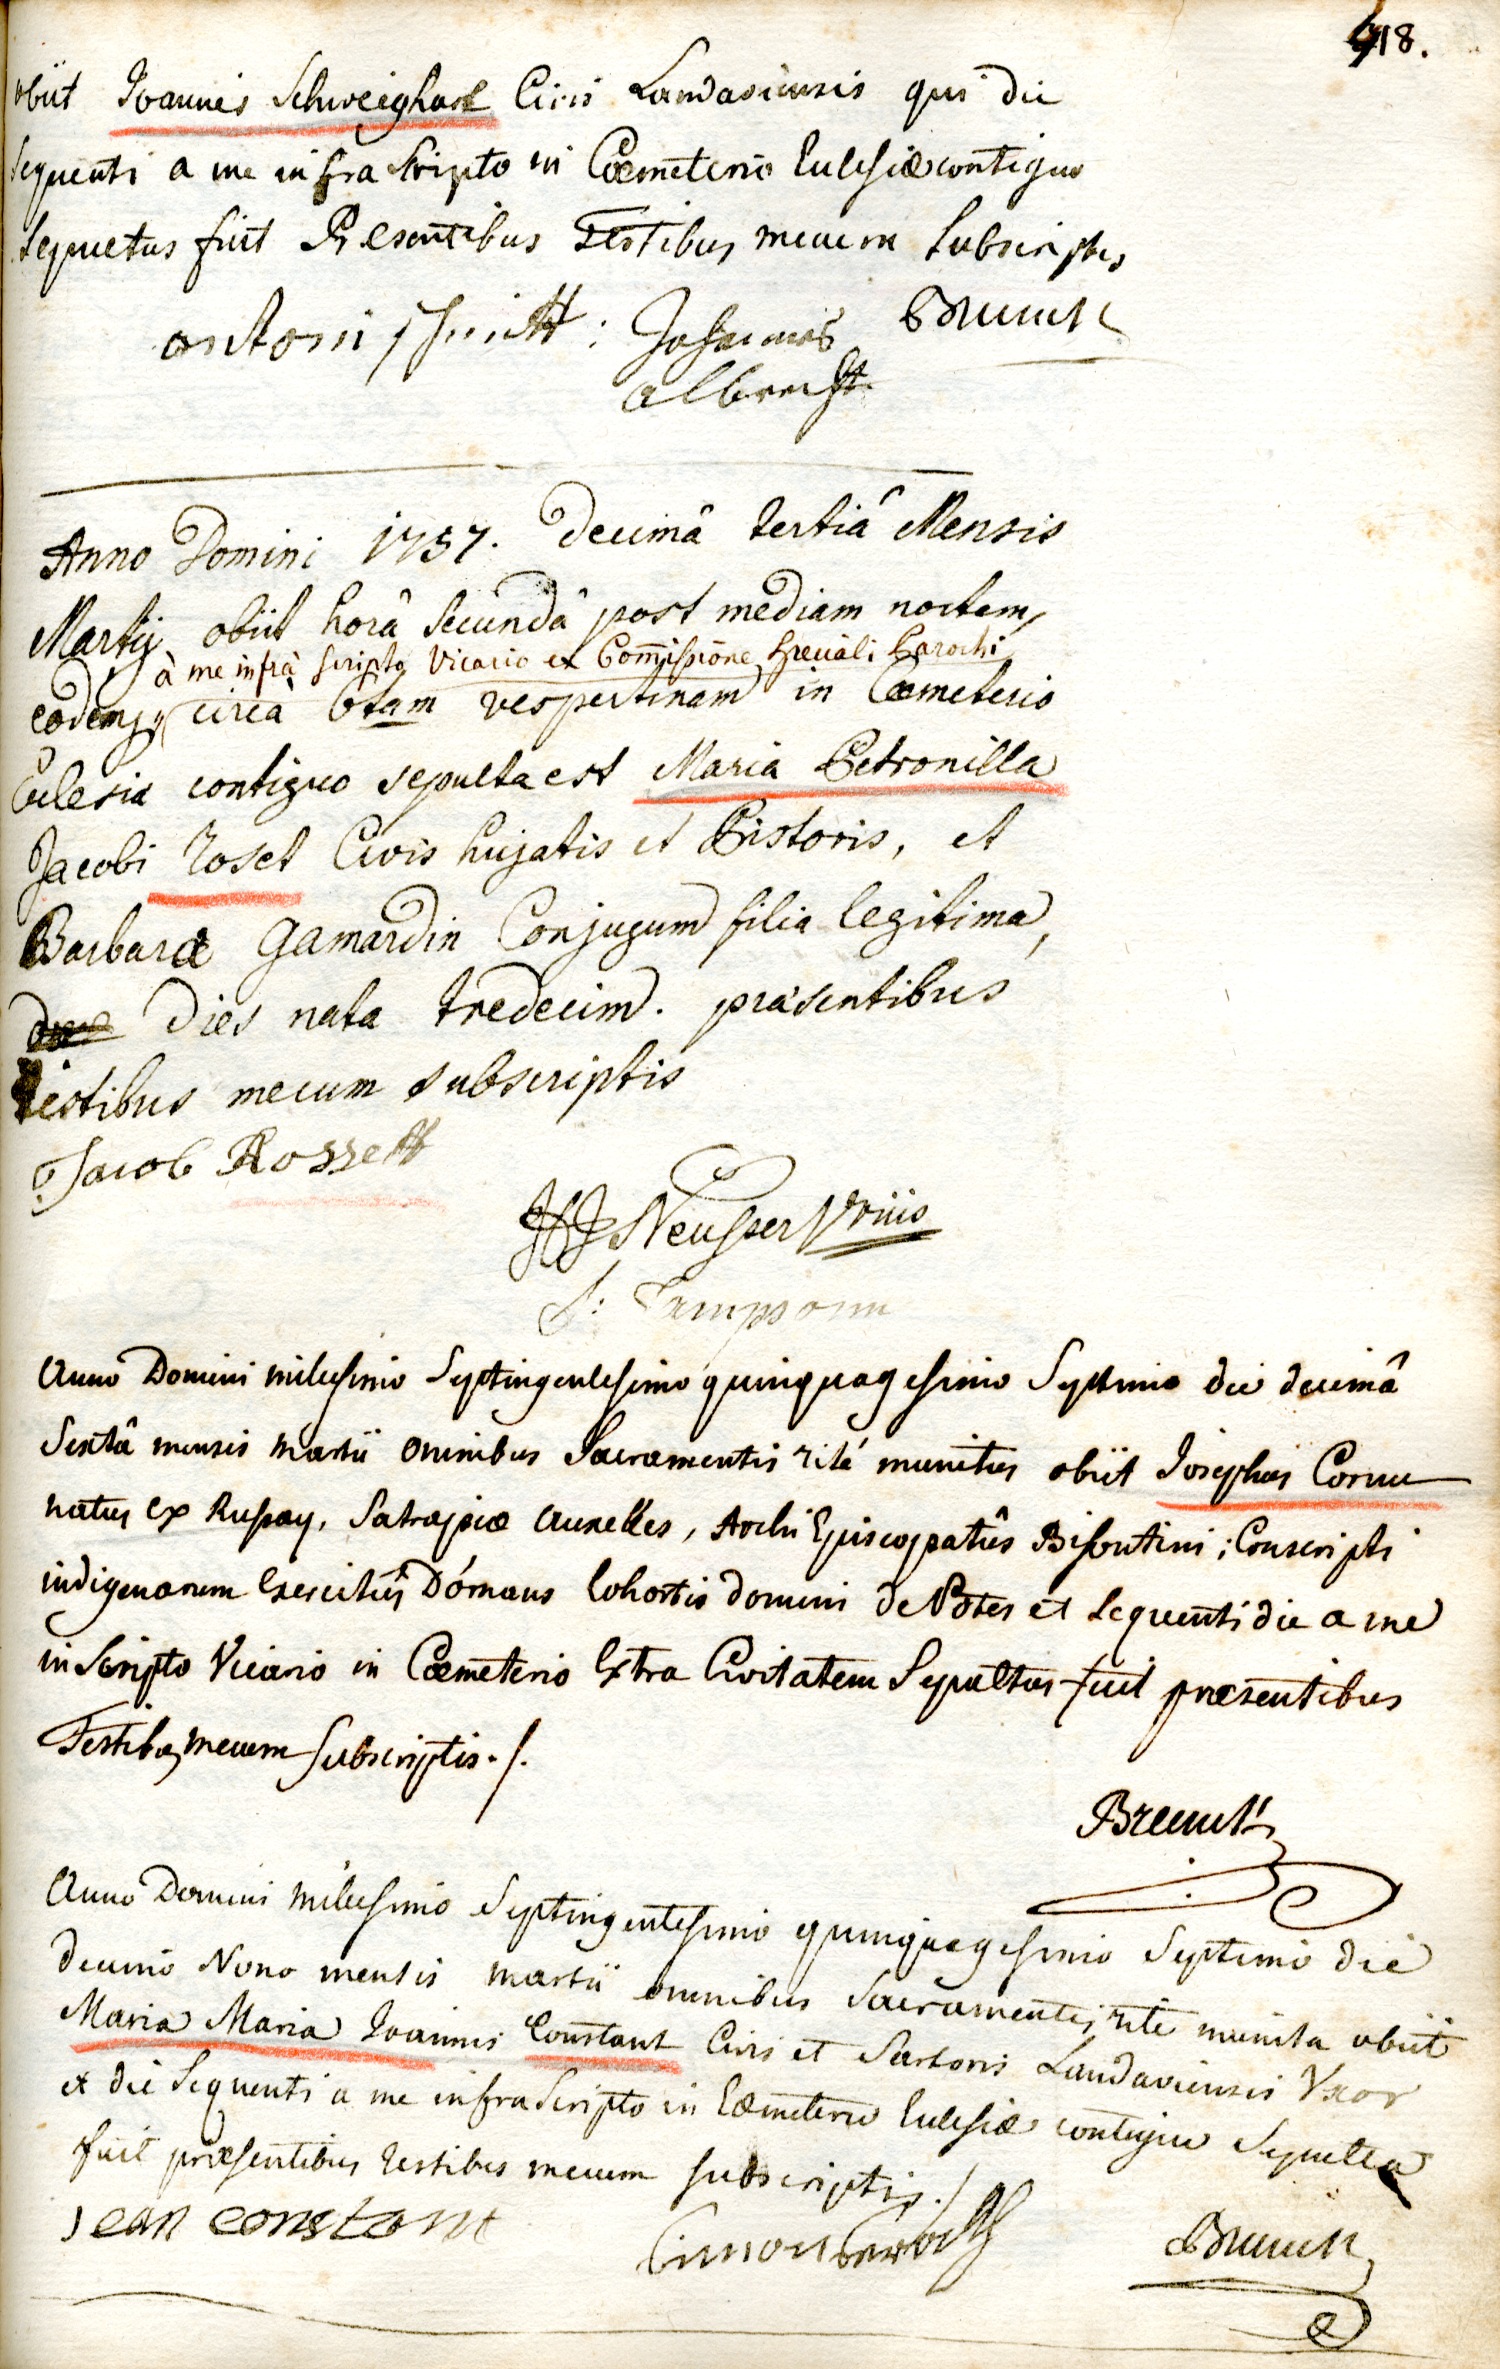 418.
obiit Joannes Schweighard Civis Landaviensis qui die
sequenti a me infra scripto in Cœmeterio Eclesiæ contiguo
sepuetus fuit Præsentibus Testibus mecum subscriptis
antoni schmitt : Johannes Brunck
albrecht
Anno Domini 1757. Decimâ tertiâ Mensis
Martij obiit horâ secundâ post mediam noctem,
à me infrà scripto Vicario ex Commissione speciali Parochi
eodemq circà 6tam vespertinam in Cœmeterio
Eclesia contiguo sepulta est Maria Petronilla
Jacobi roset Civis hujatis et Pistoris, et
Barbaræ Gamardin Conjugum filia legitima,
Dies nata tredecim. præsentibus
testibus mecum subscriptis
Jacob Rossett
HJ Neusser Vriis
Anno Domini milesimo Septingentesimo quinquagesimo Septimo die decimâ
Sextâ mensis martii omnibus Sacramentis rité munitus obiit Josephus Cornu
natus ex Rupay, Satrapiæ Aunelles, Archi Episcopatûs Bisontini ; Conscripti
indigenarum Exercitûs Dórnans Cohortis domini de Potes et sequenti die a me
in Scripto Vicario in Cœmeterio Extra Civitatem Sepultus fuit præsentibus
Testibus mecum subscriptis ./.
Brunck
Anno Domini milesimo Septingentesimo quinquagesimo Septimo die
decimo Nono mensis martii omnibus Sacramentis rite munita obiit
Maria Maria Joannis Constant Civis et Sartoris Landaviensis Vxor
et die Sequenti a me infra Scripto in Cœmeterio Eclesiæ contiguo Sepulta
fuit præsentibus testibus mecum subscriptis ./
Jean constant
Brunck